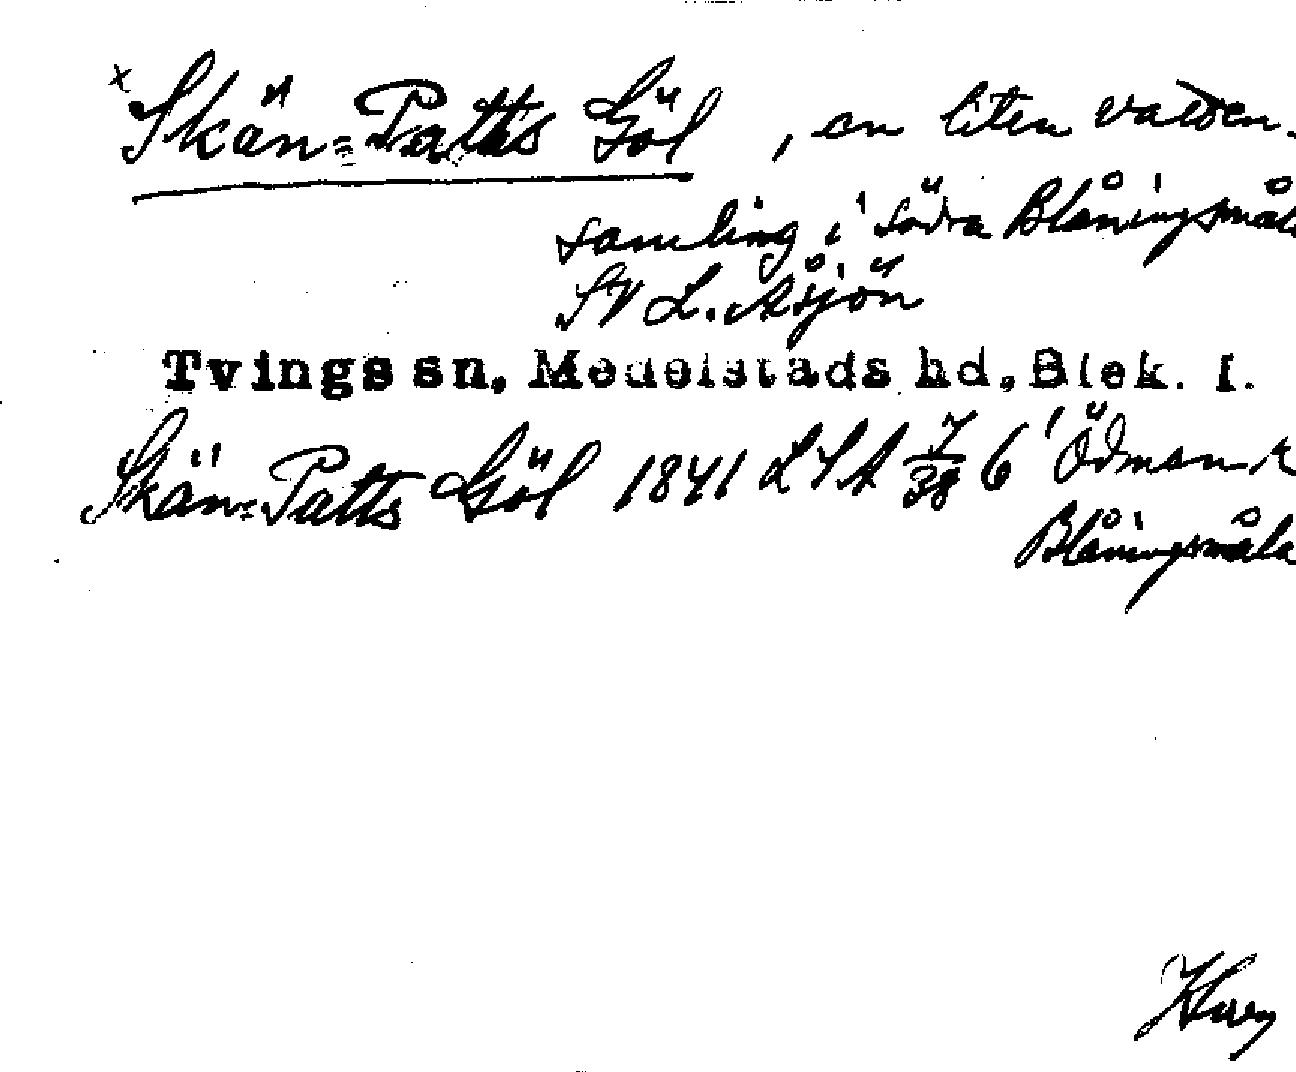 x Skän=Patts Göl, en liten vatten-
samling i södra Blåningsmåla
SV L. Åsjön
Tvings sn, Medelstads hd, Blek. l.
Skän=Patts Göl 1841 LSA 7/38 6 Ödman k
Blåningsmåla